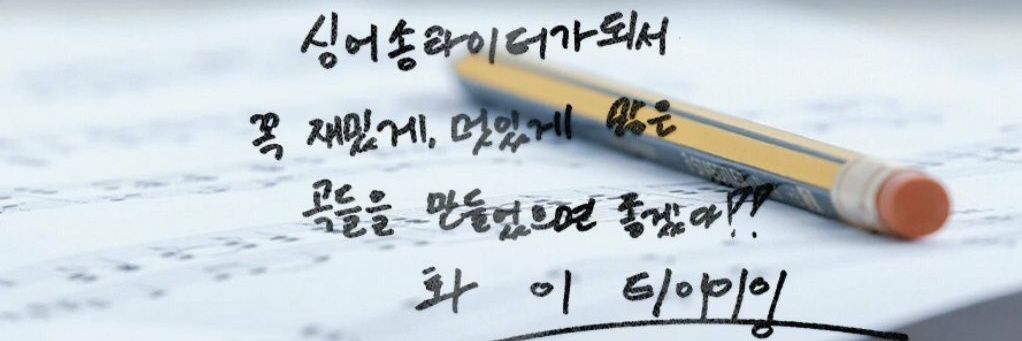 싱어송라이터가되서
꼭 재밌게, 멋있게 많은
곡들을 만들었으면 좋겠다!?
화 이 티이이잉